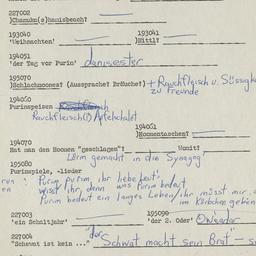 227002
)Chamukə(s)hausibesch?
193040 193041
'Weihnachten' )Hittl?
194051
'der Tag vor Purim' danisester
195070
)Schlachmoones? (Aussprache? Bräuche?) + Rauchfleisch u. Süssigk
zu Freunde
194060
Purimspeisen
Rauchfleisch(!) Apfelschalet
194061
)Homentaschen?
194070
Hat man den Hoomen "geschlagen"? Womit?
Lärm gemacht in die Synagog
195080
Purimspiele, -lieder
Purim purim, ihr liebe Leit's
wisst ihr, denn was Purim bedeut
Purim bedeut ein langes Leben, ihr müsst mir
im Körbche geben
227003 195090
'ein Schuljahr' 'der 2. Oder'
227004
"Schwat ist kein ..." der Schwat macht sein Brat